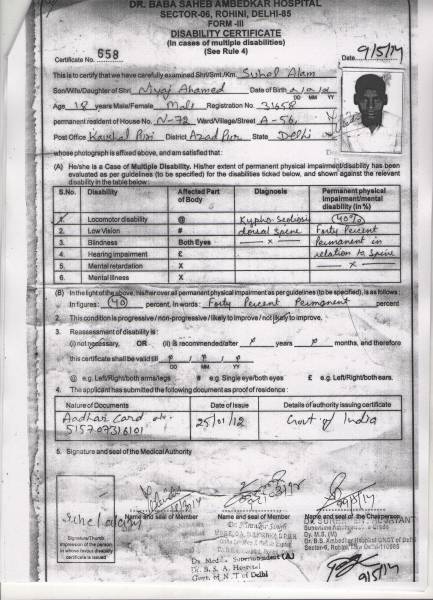 DR. BABA SAHEB AMBEDKAR HOSPITAL
SECTOR-06, ROHINI, DELHI-85
FORM -III
DISABILITY CERTIFICATE
(In cases of multiple disabilities)
(See Rule 4)
Certificate No. 658 Date 9/5/14
This is to certify that we have carefully examined Shri/Smt./Km. Suhel Alam
Son/Wife/Daughter of Shri Niyaj Ahamed Date of Birth
DD MM YY
Age 18 years Male/Female Male Registration No. 31658
permanent resident of House No. N-72 Ward/Village/Street A-56,
Post Office District Azad Pur State Delhi
whose photograph is affixed above, and am satisfied that:
(A) He/she is a Case of Multiple Disability. His/her extent of permanent physical impairment/disability has been
evaluated as per guidelines (to be specified) for the disabilities ticked below, and shown against the relevant
disability in the table below:
S.No. Disability Affected Part of Body Diagnosis Permanent physical impairment/mental disability (in %)
1. Locomotor disability @ Kypho-Scoliosis (40%)
2. Low Vision # dorsal spine Forty Percent
3. Blindness Both Eyes — x — Permanent in
4. Hearing impairment £ relation to Spine
5. Mental retardation X — x —
6. Mental illness X
(B) In the light of the above, his/her over all permanent physical impairment as per guidelines (to be specified), is as follows:
In figures: (40) percent. In words: Forty Percent Permanent percent
2. This condition is progressive / non-progressive / likely to improve / not likely to improve.
3. Reassessment of disability is:
(i) not necessary, OR (ii) is recommended/after years months, and therefore
this certificate shall be valid till
DD MM YY
@ e.g. Left/Right/both arms/legs # e.g. Single eye/both eyes £ e.g. Left/Right/both ears.
4. The applicant has submitted the following document as proof of residence:
Nature of Documents Date of Issue Details of authority issuing certificate
Aadhar Card no. 25/01/12 Govt of India
515707316101
5. Signature and seal of the Medical Authority
Name and seal of Member Name and seal of Member Name and seal of the Chairperson
Signature/Thumb
impression of the person
in whose favour disability
certificate is issued
Dy. M.S. (M)
Dr. B.S. Ambedkar Hospital GNCT of Delhi
Dy Medical Superintendent (A)
Dr. B. S. A. Hospital
Govt. of N.C.T of Delhi
9/5/14